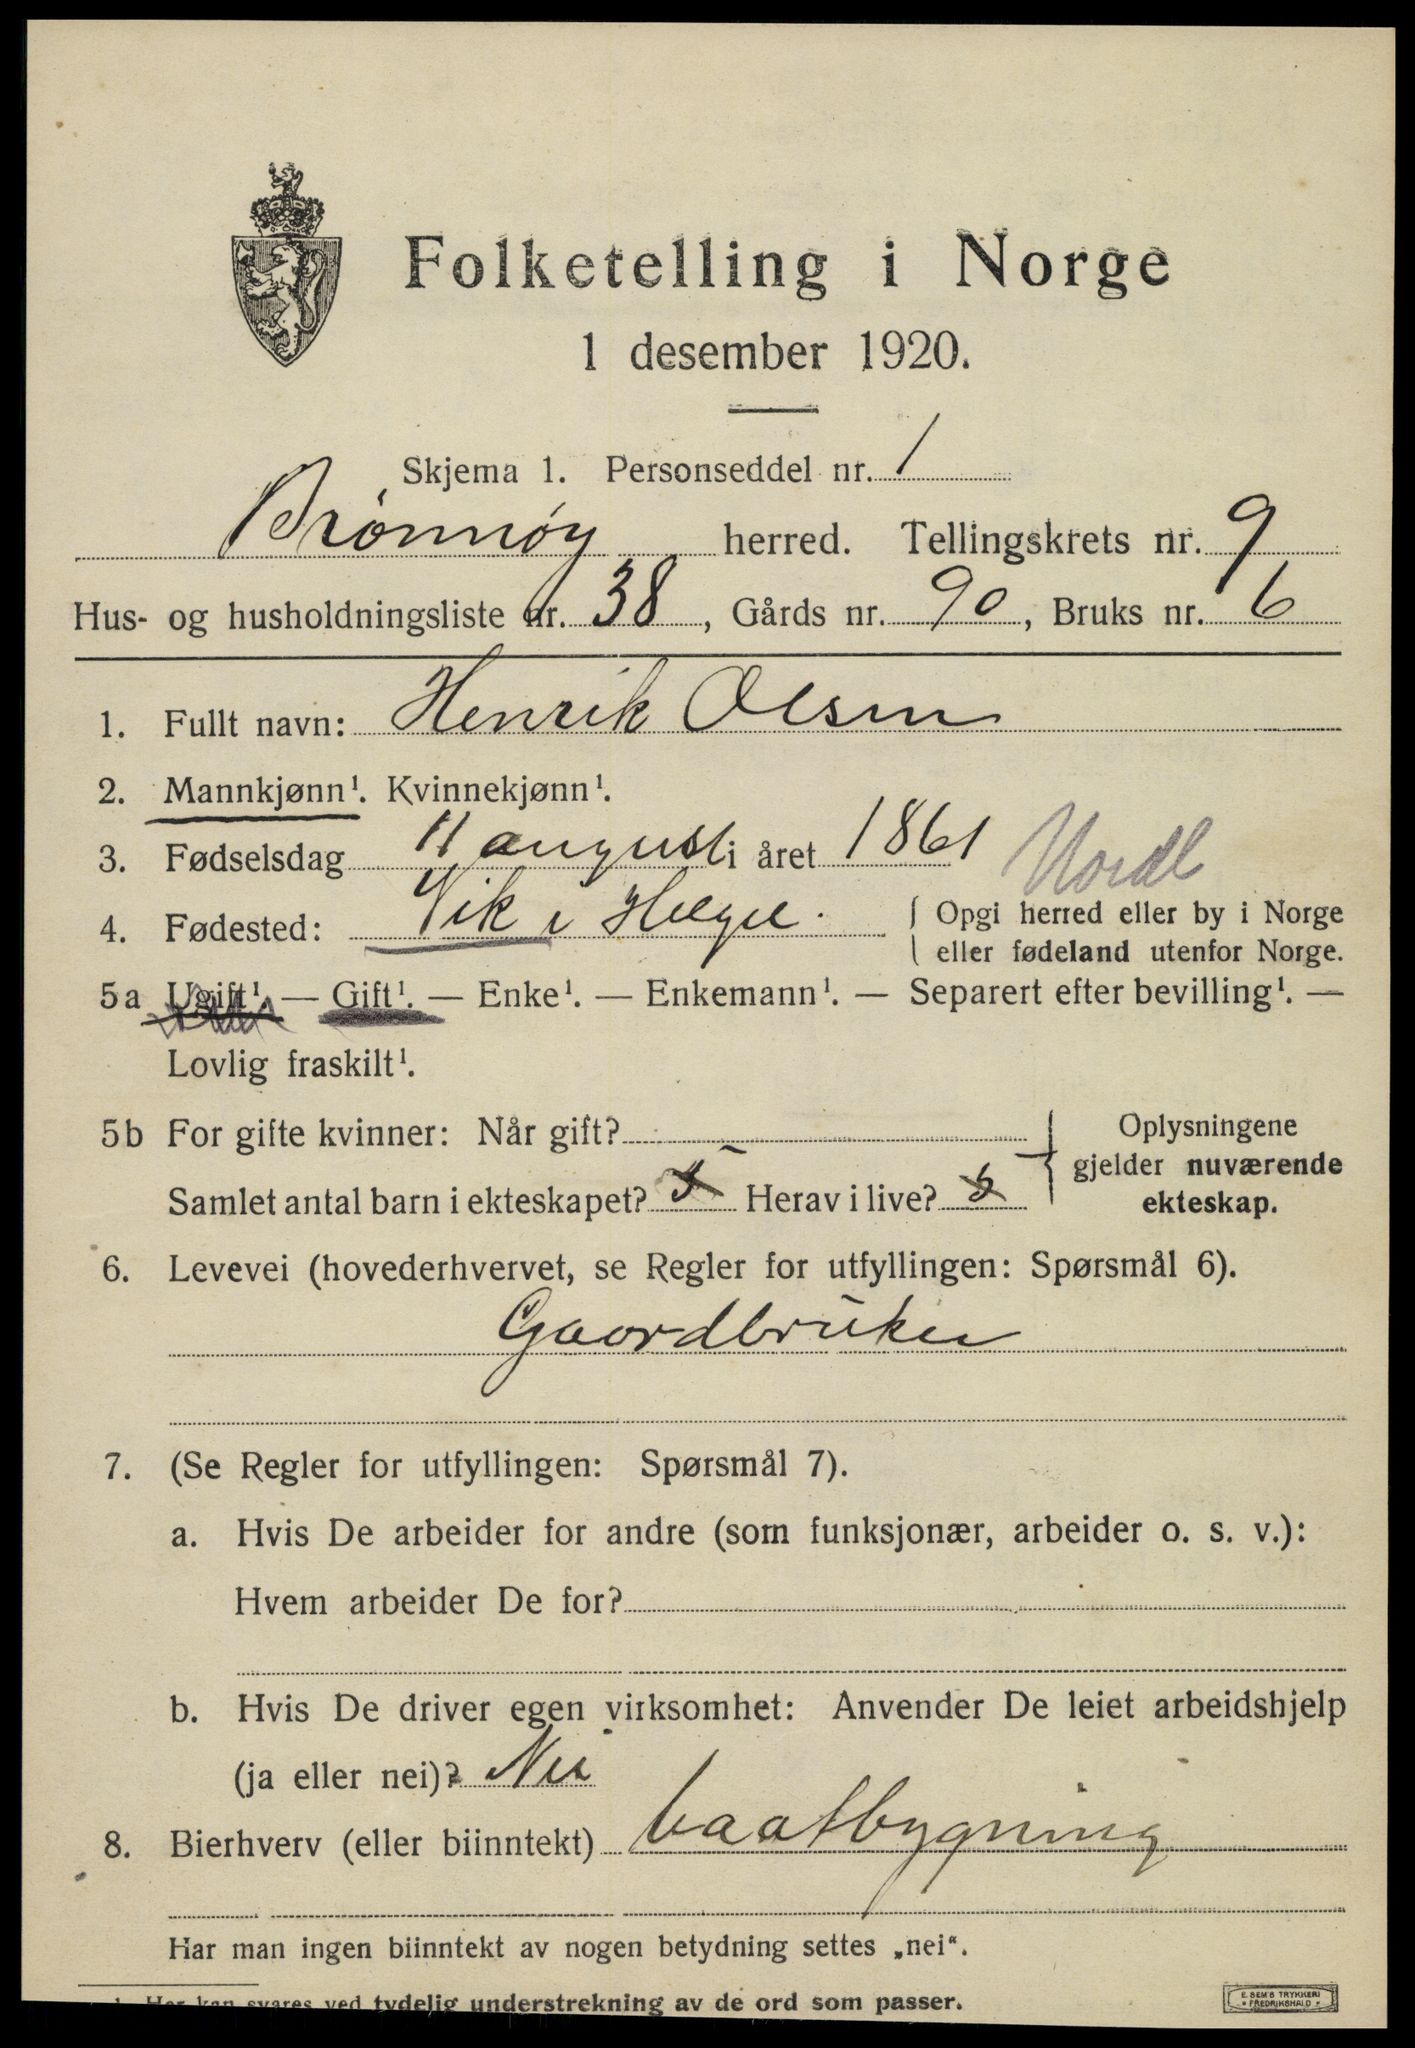 Folketelling i Norge
1 desember 1920.
Skjema 1. Personseddel nr. 1
Brønnøy herred. Tellingskrets nr. 9
Hus- og husholdningsliste nr. 38, Gårds nr. 90, Bruks nr. 6
1. Fullt navn: Henrik Olsen
2. Mannkjønn¹. Kvinnekjønn¹.
3. Fødselsdag 11 august i året 1861 Nordl
4. Fødested: Vik i Helgel. { Opgi herred eller by i Norge
eller fødeland utenfor Norge.
5a Ugift¹. — Gift¹. — Enke¹. — Enkemann¹. — Separert efter bevilling¹. —
Lovlig fraskilt¹.
5b For gifte kvinner: Når gift? } Oplysningene
gjelder nuværende
Samlet antal barn i ekteskapet? 5 Herav i live? 5 ekteskap.
6. Levevei (hovederhvervet, se Regler for utfyllingen: Spørsmål 6).
Gaardbruker
7. (Se Regler for utfyllingen: Spørsmål 7).
a. Hvis De arbeider for andre (som funksjonær, arbeider o. s. v.):
Hvem arbeider De for?
b. Hvis De driver egen virksomhet: Anvender De leiet arbeidshjelp
(ja eller nei)? Nei
8. Bierhverv (eller biinntekt) baatbygning
Har man ingen biinntekt av nogen betydning settes „nei“.
¹ Her kan svares ved tydelig understrekning av de ord som passer.
E. SEM'S TRYKKERI
FREDRIKSHALD